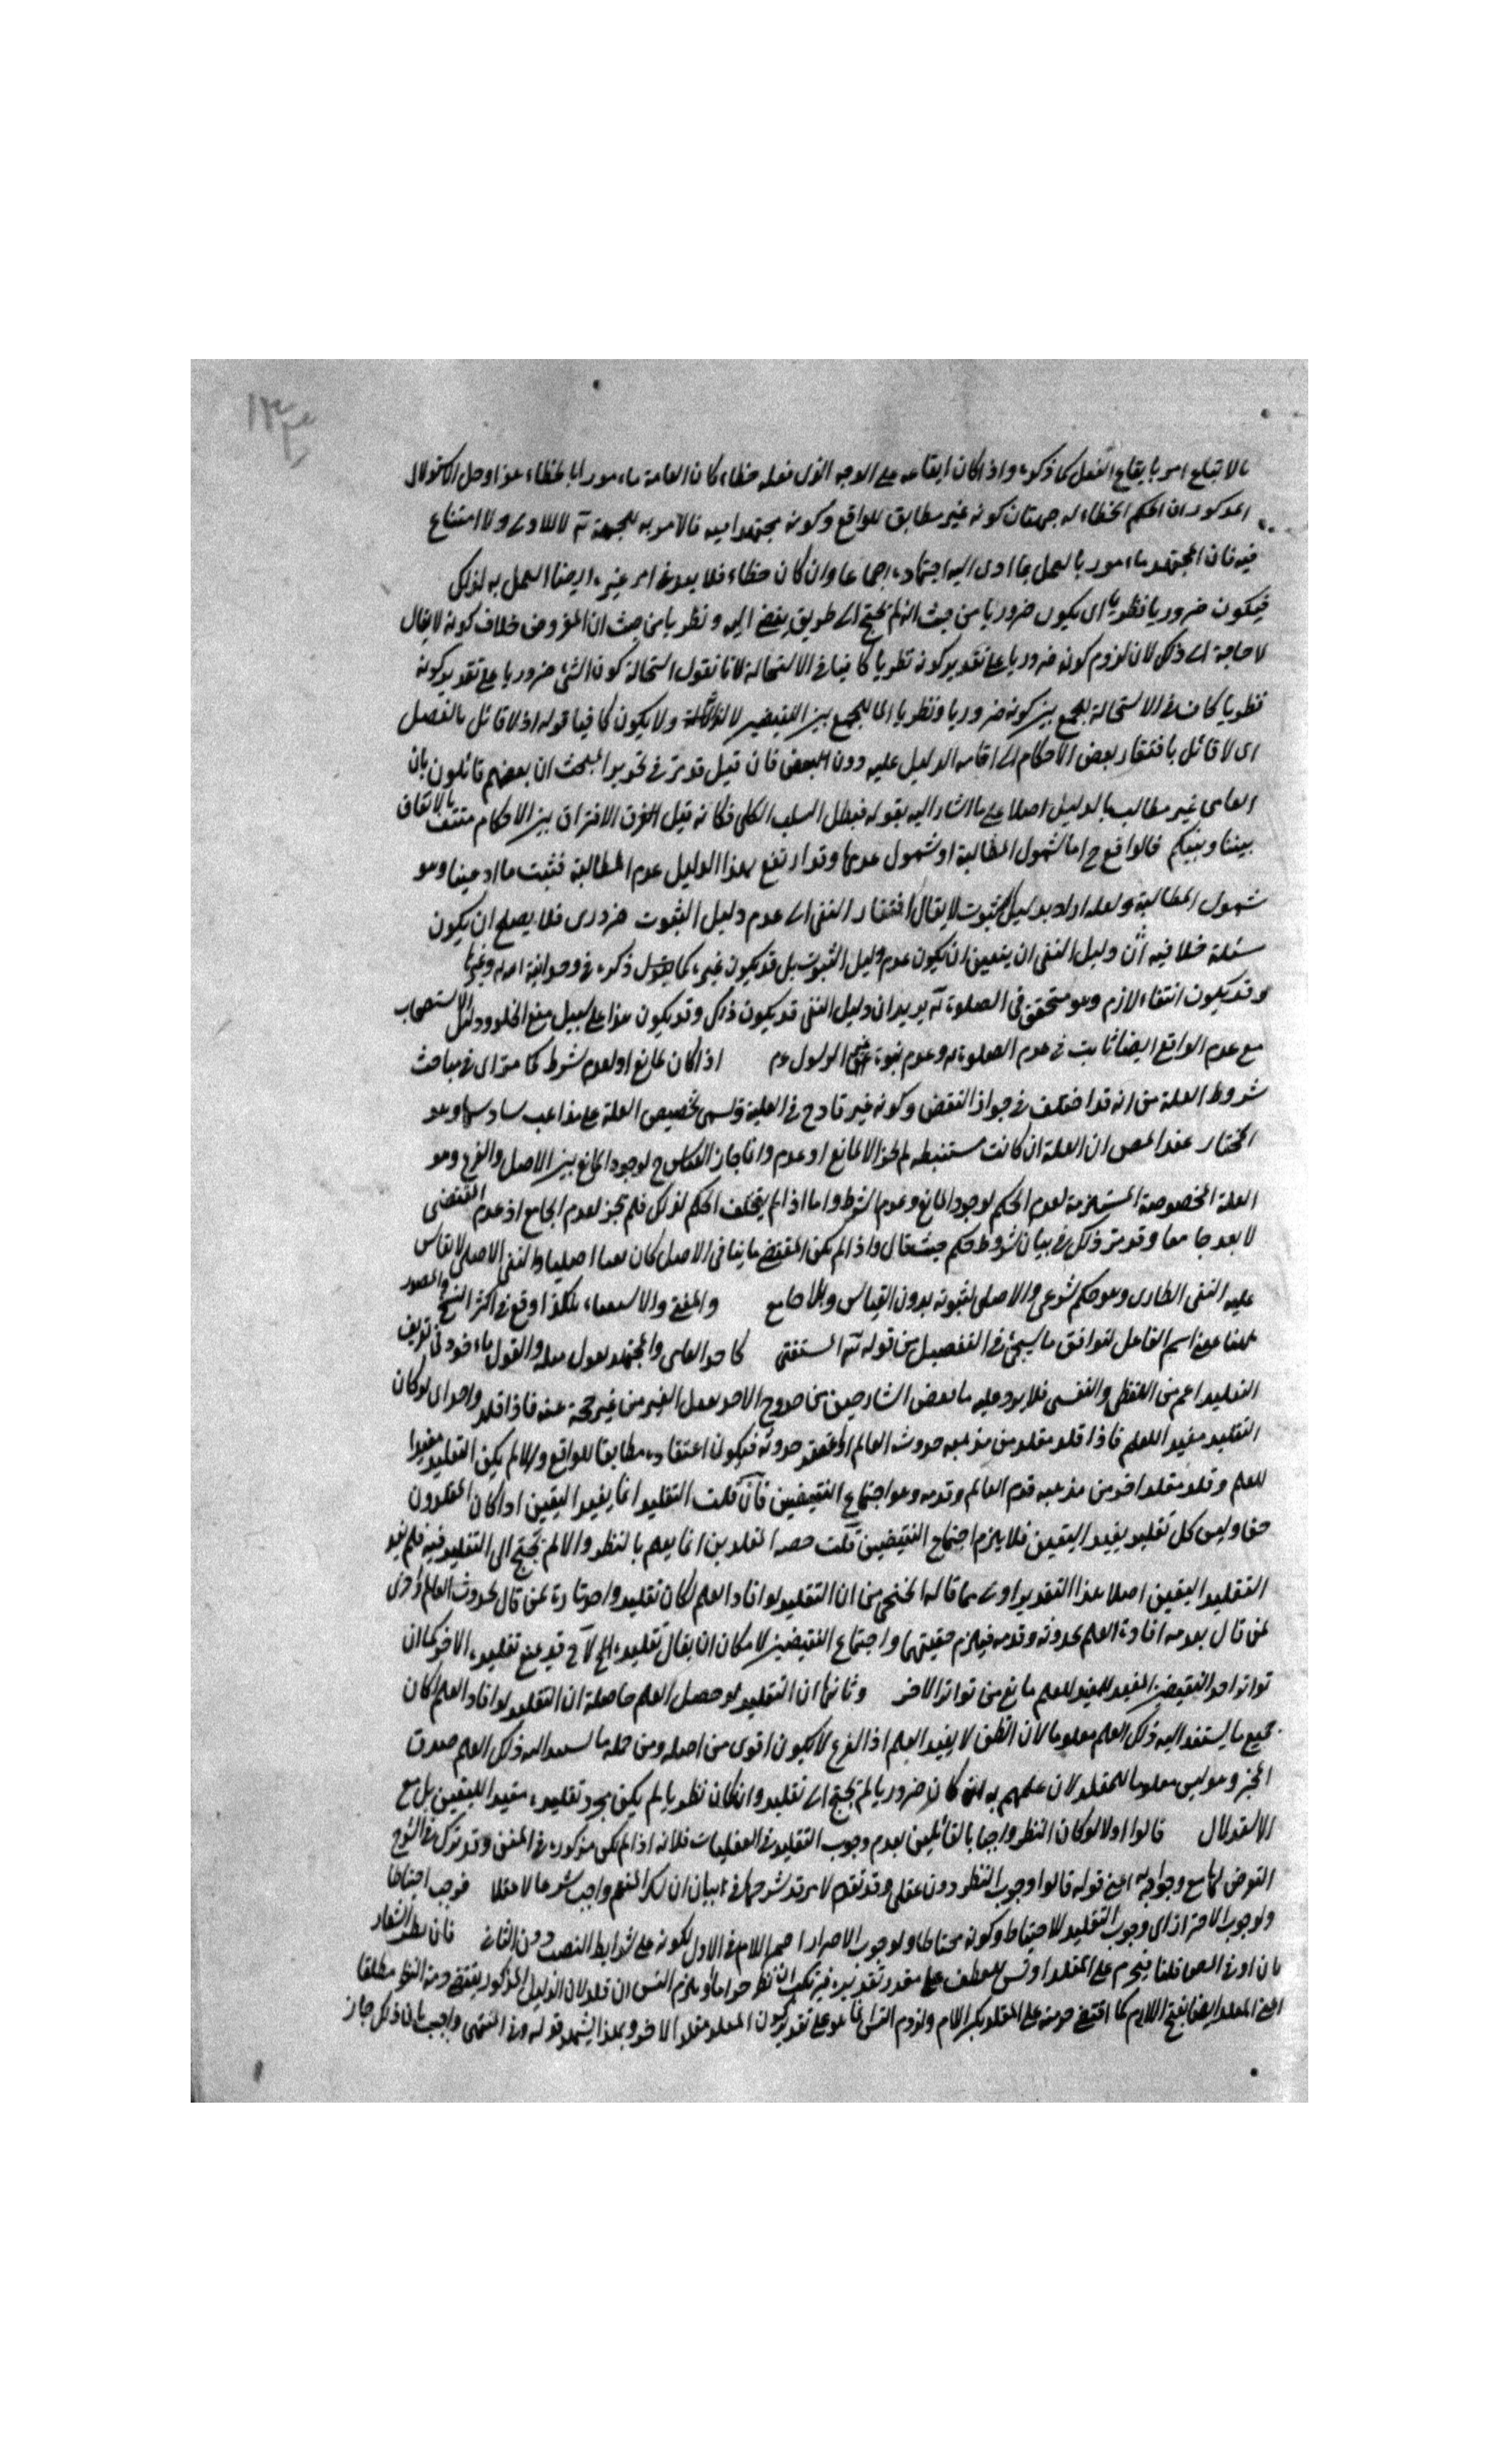 بالاتباع امر بايقاع الفعل كما ذكره واذا كان ايقاعه على الوجه الذى فعله خطاء كان العامة مأمورا بالخطاء هذا وحل الاستدلال
المذكور ان الحكم الخطاء له جهتان كونه غير مطابق للواقع وكونه مجتهدا فيه فالامر به للجهة لا للاولى ولا امتناع
فيه فان المجتهد مأمور بالعمل بما ادى اليه اجتهاده اجماعا وان كان خطاء فلا يبعد فى امر غيره ايضا العمل به لذلك
فيكون ضروريا نظريا اى يكون ضروريا من حيث انه لم يحتج الى طريق يفضى اليه ونظريا من حيث ان المفروض خلاف كونه لا يقال
لا حاجة الى ذلك لان لزوم كونه ضروريا على تقدير كونه نظريا كاف فى الاستحالة لانا نقول استحالة كون الشئ ضروريا على تقدير كونه
نظريا كاف فى الاستحالة للجمع بين كونه ضروريا ونظريا اما للجمع بين النقيضين ولا يكون كافيا قوله اذ لا قائل بالفصل
اى لا قائل بافتقار بعض الاحكام الى اقامة الدليل عليه دون البعض فان قيل قد مر فى تحرير المبحث ان بعضهم قائلون بان
النافى غير مطالب بالدليل اصلا على ما اشار اليه بقوله فبطل السلب الكلى فكانه قيل الفرق الافتراق بين الاحكام منتف بالاتفاق
بيننا وبينكم فالواقع ح اما شمول المطالبة او شمول عدمها وقد ارتفع بهذا الدليل عدم المطالبة فثبت ما ادعينا وهو
شمول المطالبة ولعله اراد بدليل الثبوت لا يقال افتقار النفى الى عدم دليل الثبوت ضرورى فلا يصلح ان يكون
مسئلة خلافية لان دليل النفى ان يتعين ان يكون عدم دليل الثبوت بل قد يكون غيره كما يقول ذكره فى وحدانية الله وغيرها
وقد يكون انتفاء لازم وهو متحقق فى الصلوة يريد ان دليل النفى قد يكون ذلك وقد يكون هذا على سبيل منع الخلو ودليل الاستصحاب
مع عدم الواقع ايضا ثابت فى عدم الصلوة وعدم نبوة غير الرسول عم اذا كان لمانع او لعدم شرط كما مر اى فى مباحث
شروط العلة من انه قد اختلف فى جواز النقض وكونه غير قادح فى العلية ويسمى تخصيص العلة على مذاهب سادسها وهو
المختار عند المص ان العلة ان كانت مستنبطة لم يجز الا لمانع او عدم وانما جاز القياس ح لوجود الجامع بين الاصل والفرع وهو
العلة المخصوصة المستلزمة لعدم الحكم لوجود المانع وعدم الشرط واما اذا لم يتخلف الحكم لذلك فلم يجز لعدم الجامع اذ عدم المقتضى
لا يعد جامعا وقد مر ذلك فى بيان شروط حكم حيث قال واذا لم يكن المقتضى ثابتا فى الاصل كان نفيا اصليا والنفى الاصلى لا يقاس
عليه النفى الطارى وهو حكم شرعى ولا الاصلى لثبوته بدون القياس وبلا جامع والمفتى والاستفتاء هكذا وقع فى اكثر النسخ
ههنا على اسم الفاعل لتوافق ما سيجئ فى التفصيل من قوله المستفتى كاخذ العامى والمجتهد بقول مثله والقول المأخوذ فى تعريف
التقليد اعم من اللفظى والنفسى فلا يرد عليه ما بعض الشارحين من خروج الاخذ بفعل الغير من غير حجة عنه فاذا قلد واحد اى لو كان
التقليد مفيدا للعلم فاذا قلد مقلد من مذهبه حدوث العالم اى حدوثه فيكون اعتقاده مطابقا للواقع والا لم يكن التقليد مفيدا
للعلم وقلد مقلد اخر من مذهبه قدم العالم وقدمه وهو اجتماع النقيضين فان قلت التقليد انما يفيد اليقين اذا كان المقلدون
حقا وليس كل تقليد يفيد اليقين فلا يلزم اجتماع النقيضين قلت انما يعلم بالنظر والا لم يحتج الى التقليد فيه فلم يفد
التقليد اليقين اصلا هذا التقدير اولى مما قاله الخنجى من ان التقليد لو افاد العلم لكان تقليد واحد تارة لمن قال بحدوث العالم واخرى
لمن قال بقدمه افادة العلم بحدوثه وقدمه فيلزم حقيتهما واجتماع النقيضين لامكان ان يقال تقليده قد يمنع تقليده الاخر كما ان
تواتر احد النقيضين المفيد للعلم مانع من تواتر الاخر وثانيها ان التقليد لو حصل العلم حاصله ان التقليد لو افاد العلم لكان
جميع ما يستند اليه ذلك العلم معلوما لان الظن لا يفيد العلم اذ الفرع لا يكون اقوى من اصله ومن جملة ما يستند اليه ذلك العلم صدق
المخبر وهو ليس معلوما للمقلد لان علمهم به ان كان ضروريا لم يحتج الى تقليد وان كان نظريا لم يكن مجرد تقليده مفيدا لليقين بل مع
الاستدلال قالوا اولا لو كان النظر واجبا بالقائلين بعدم وجوب التقليد فى العقليات فلانه اذا لم يكن مذكورا فى المتن وقد ترك فى الشرح
التعرض لها مع وجوابه اعنى قوله قالوا وجوب النظر دون عقلى وقد تقدم شرحها فى بيان ان شكر المنعم واجب شرعا لا عقلا فوجب احتياطا
ولوجوب الاحتراز اى وجوب التقليد للاحتياط وكونه محتاطا ولوجوب الاحتراز اللام فى الاول لكونه على شرايط النصب دون الثانى
فيحرم على المقلد للعطف على مقدر تقديره فيرتكب ان نظر حراما او يلزم التس ان قلد لان الدليل المذكور يقتضى حرمة النظر مطلقا
على المقلد ايضا بفتح اللام كما اقتضى حرمته على المقلد بكسر اللام ولزوم التس انما هو على تقدير كون المقلد مقلدا لاخر وبهذا يشهد قوله وفى المنتهى واجيب بان ذلك جاز